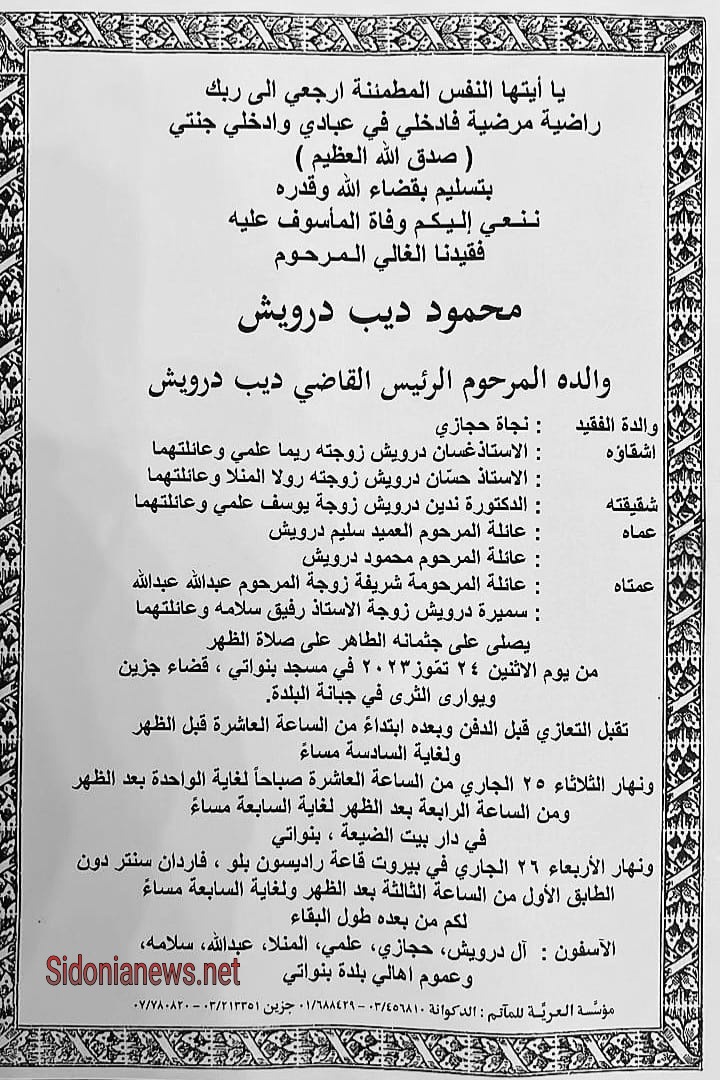 يا أيتها النفس المطمئنة ارجعي الى ربك
راضية مرضية فادخلي في عبادي وادخلي جنتي
( صدق الله العظيم )
بتسليم بقضاء الله وقدره
ننعي إليكم وفاة المأسوف عليه
فقيدنا الغالي المرحوم
محمود ديب درويش
والده المرحوم الرئيس القاضي ديب درويش
والدة الفقيد : نجاة حجازي
اشقاؤه : الاستاذغسان درويش زوجته ريما علمي وعائلتهما
: الاستاذ حسّان درويش زوجته رولا المنلا وعائلتهما
شقيقته : الدكتورة ندين درويش زوجة يوسف علمي وعائلتهما
عماه : عائلة المرحوم العميد سليم درويش
: عائلة المرحوم محمود درويش
عمتاه : عائلة المرحومة شريفة زوجة المرحوم عبدالله عبدالله
: سميرة درويش زوجة الاستاذ رفيق سلامه وعائلتهما
يصلى على جثمانه الطاهر على صلاة الظهر
من يوم الاثنين ٢٤ تمّوز ٢٠٢٣ في مسجد بنواتي ، قضاء جزين
ويوارى الثرى في جبانة البلدة.
تقبل التعازي قبل الدفن وبعده ابتداءً من الساعة العاشرة قبل الظهر
ولغاية السادسة مساءً
ونهار الثلاثاء ٢٥ الجاري من الساعة العاشرة صباحاً لغاية الواحدة بعد الظهر
ومن الساعة الرابعة بعد الظهر لغاية السابعة مساءً
في دار بيت الضيعة ، بنواتي
ونهار الأربعاء ٢٦ الجاري في بيروت قاعة راديسون بلو ، فاردان سنتر دون
الطابق الأول من الساعة الثالثة بعد الظهر ولغاية السابعة مساءً
لكم من بعده طول البقاء
الآسفون : آل درويش، حجازي، علمي، المنلا، عبدالله، سلامه،
وعموم اهالي بلدة بنواتي
Sidonianews.net
مؤسَّسة العريَّة للمآتم : الدكوانة ٠٣/٤٥٦٨١٠ - ٠١/٦٨٨٤٢٩ جزين ٠٣/٢١٣٣٥١ - ٠٧/٧٨٠٨٢٠